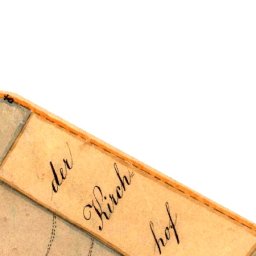 der
Kirch
hof